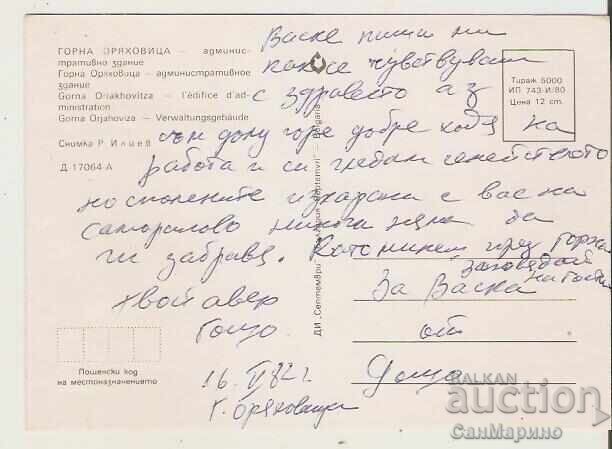 ГОРНА ОРЯХОВИЦА — админис-
тративно здание
Горна Оряховица — административное
здание
Gorna Oriakhovitza — l'édifice d'ad-
ministration
Gorna Orjahoviza — Verwaltungsgebäude
Снимка Р Илиев
Д 17064-А
Тираж 5000
ИП 743/И/80
Цена 12 cm.
Васке пиши ни
как се чувствуваш
с здравето аз
съм долу горе добре ходя на
работа и си гледам семейството
но спомените изкарани с вас на
никога няма да
ги забравя. Като минеш през Горна
заповядай
на гости
Твой авер
Гошо
16. VI 82 г.
Г. Оряховица
За Васка
от
Гошо
ДИ „Септември
Bulgaria
Пощенски код
на местоназначението
BALKAN
auction
СанМарино